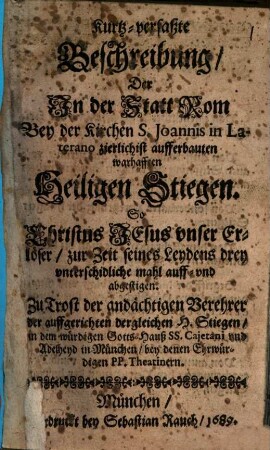 Kurtz-verfaßte
Beschreibung/
Der
In der Statt Rom
Bey der Kirchen S. Joannis in La-
terano zierlichist aufferbauten
warhafften
Heiligen Stiegen.
So
Christus JEsus unser Er-
löser / zur Zeit seines Leydens drey
unterschidliche mahl auff- und
abgestigen.
Zu Trost der andächtigen Verehrer
der auffgerichten dergleichen H. Stiegen /
in dem würdigen Gotts-Hauß SS. Cajetani und
Adelheyd in München / bey denen Ehrwür-
digen PP. Theatinern.
München /
Gedruckt bey Sebastian Rauch / 1689.